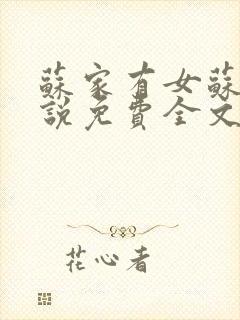 蘇家有女蘇
說免費全文
花心者